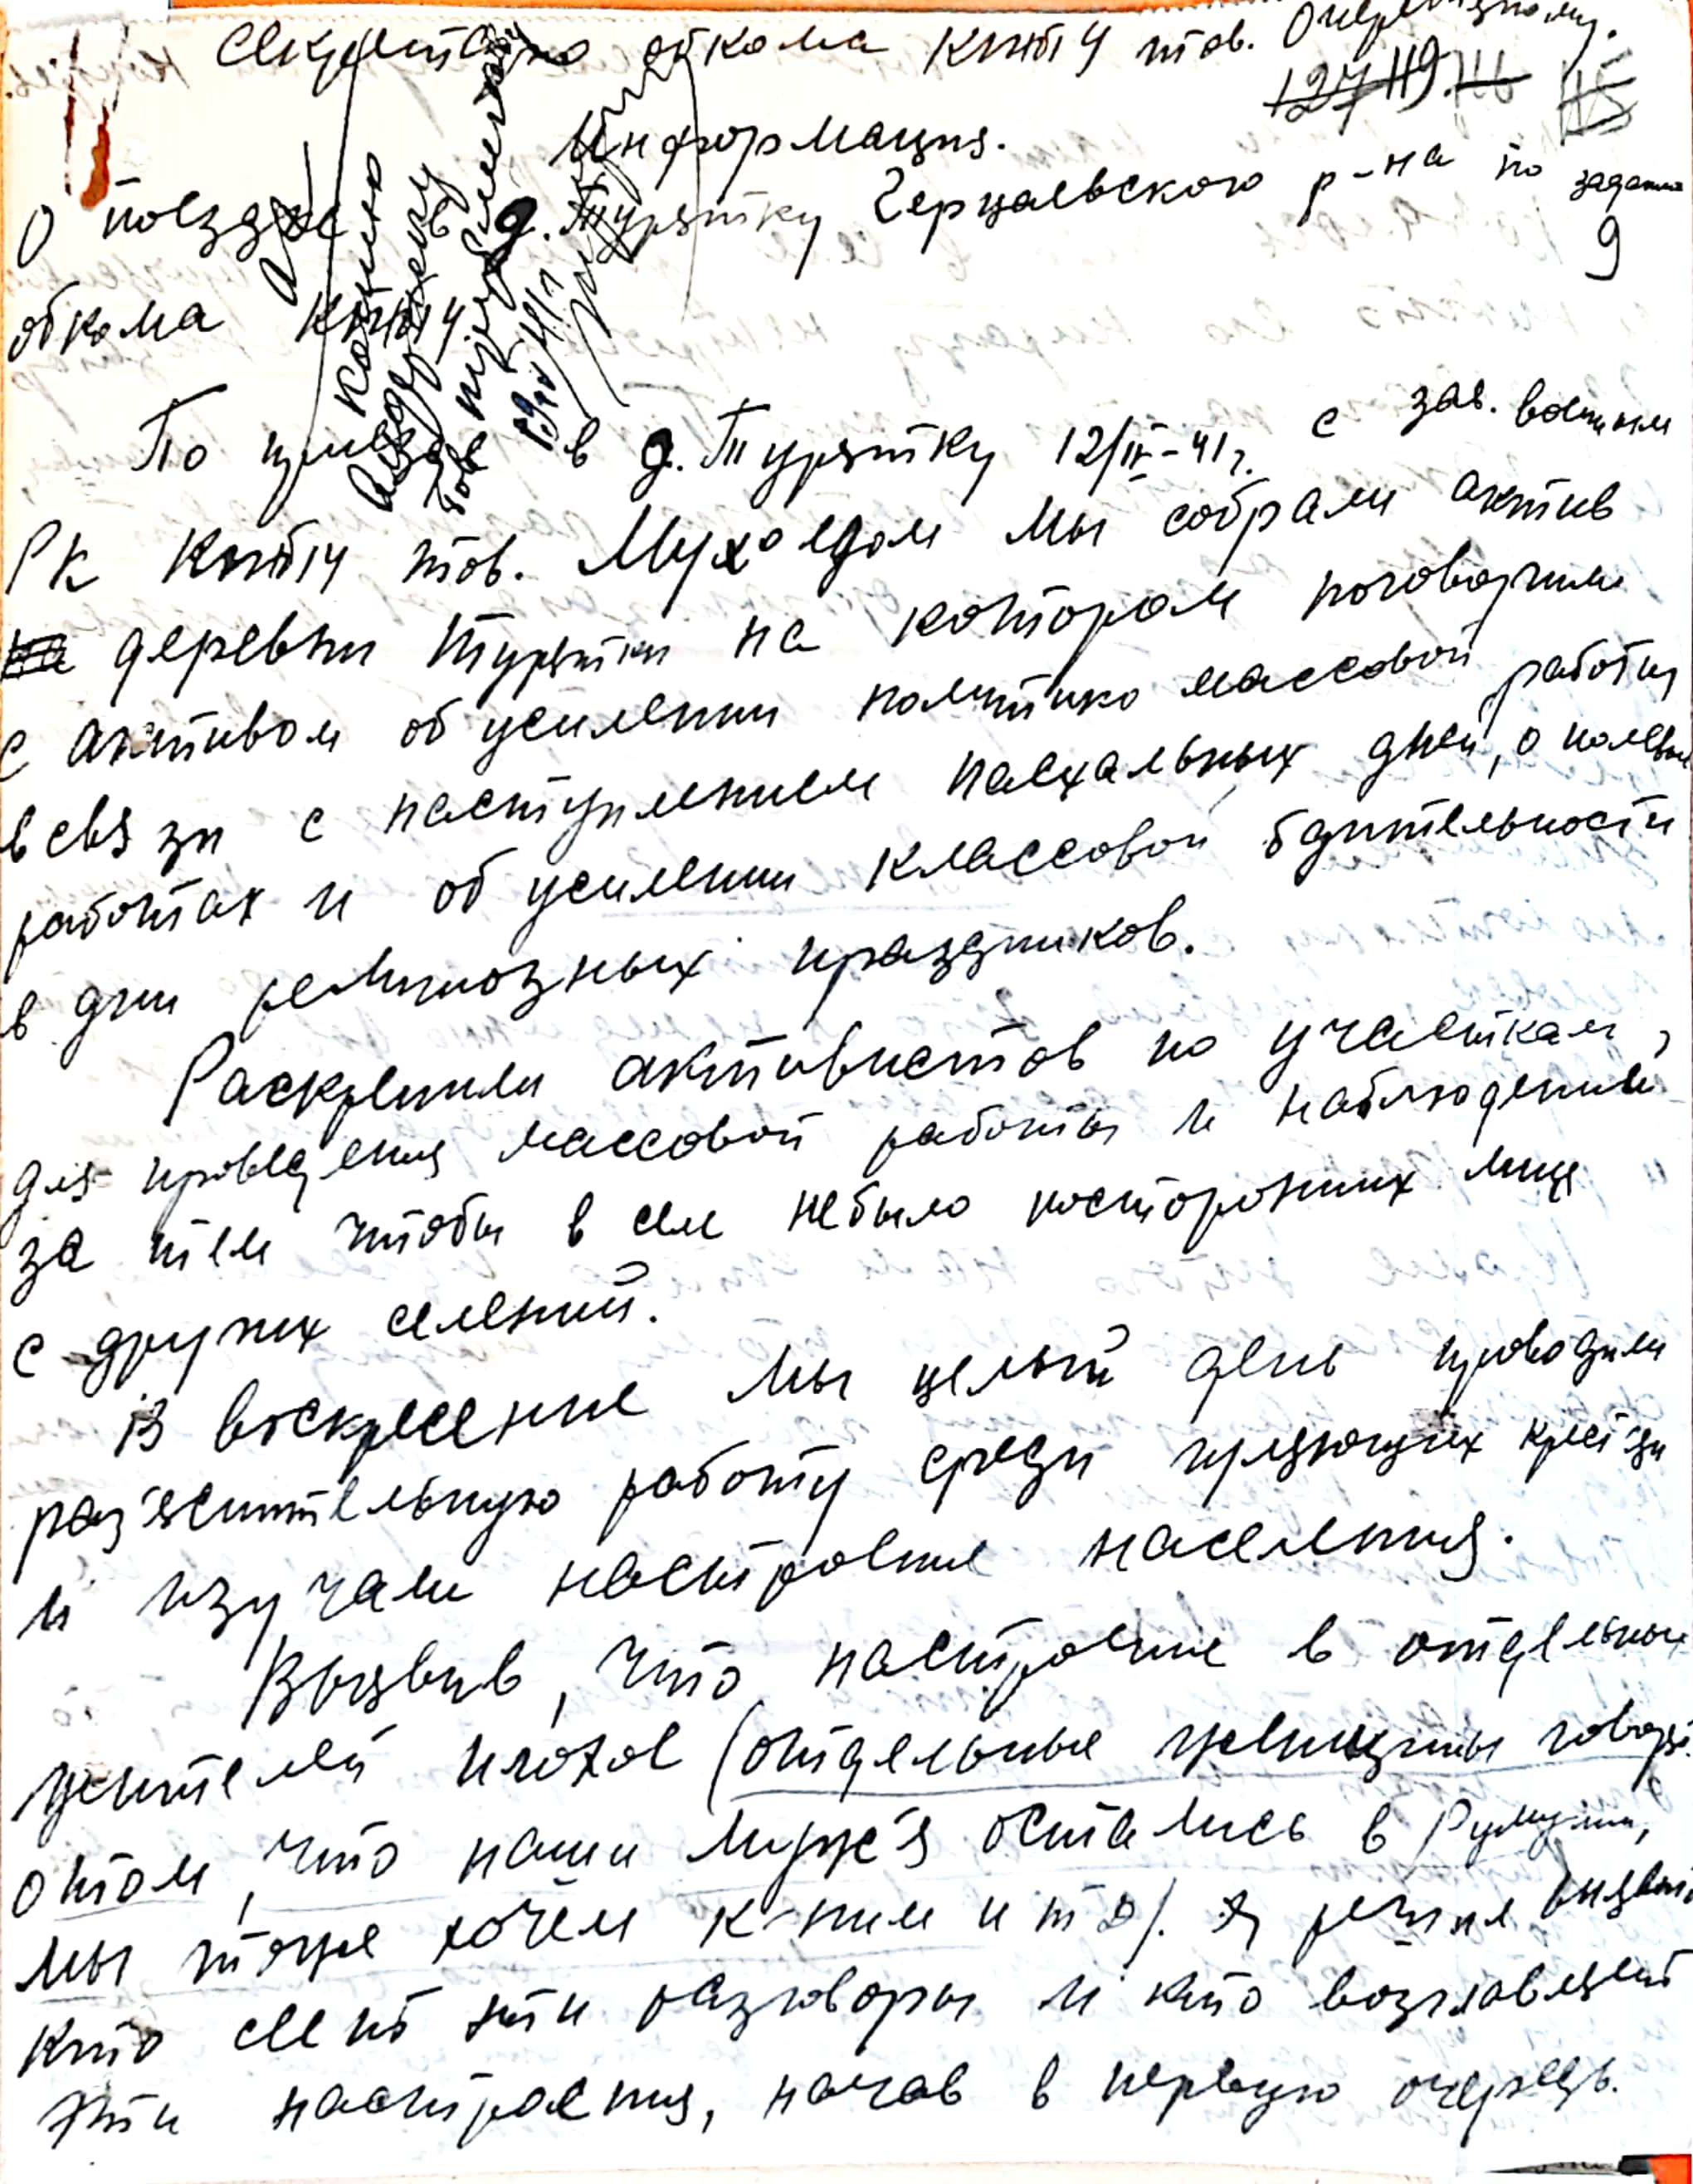 Секретарю обкома КП/б/У тов.
127 119.
Информация.
О поездке в д. Турятку Герцаевского р-на по заданию
9
обкома КП/б/У.
По приезде в д. Турятку 12/IV-41г. с зав. военным
РК КП/б/У тов. Мухоедом мы собрали актив
на деревни Турятки на котором поговорили
с активом об усилении политико массовой работы
в связи с наступлением пасхальных дней, о полевых
работах и об усилении классовой бдительности
в дни религиозных праздников.
Раскрепили активистов по участкам,
для проведения массовой работы и наблюдением
за тем чтобы в селе небыло посторонних лиц
с других селений.
В воскресение мы целый день проводили
раз'яснительную работу среди крест'ян
и изучали настроение населения.
Выявив, что настроение в отдельных
жителей плохое (отдельные женщины говорят
отом, что наши мужья остались в Румынии,
мы тоже хочем к ним и т д). Я решил выявить
кто сеит эти разговоры и кто возглавляет
эти настроения, начав в первую очередь.